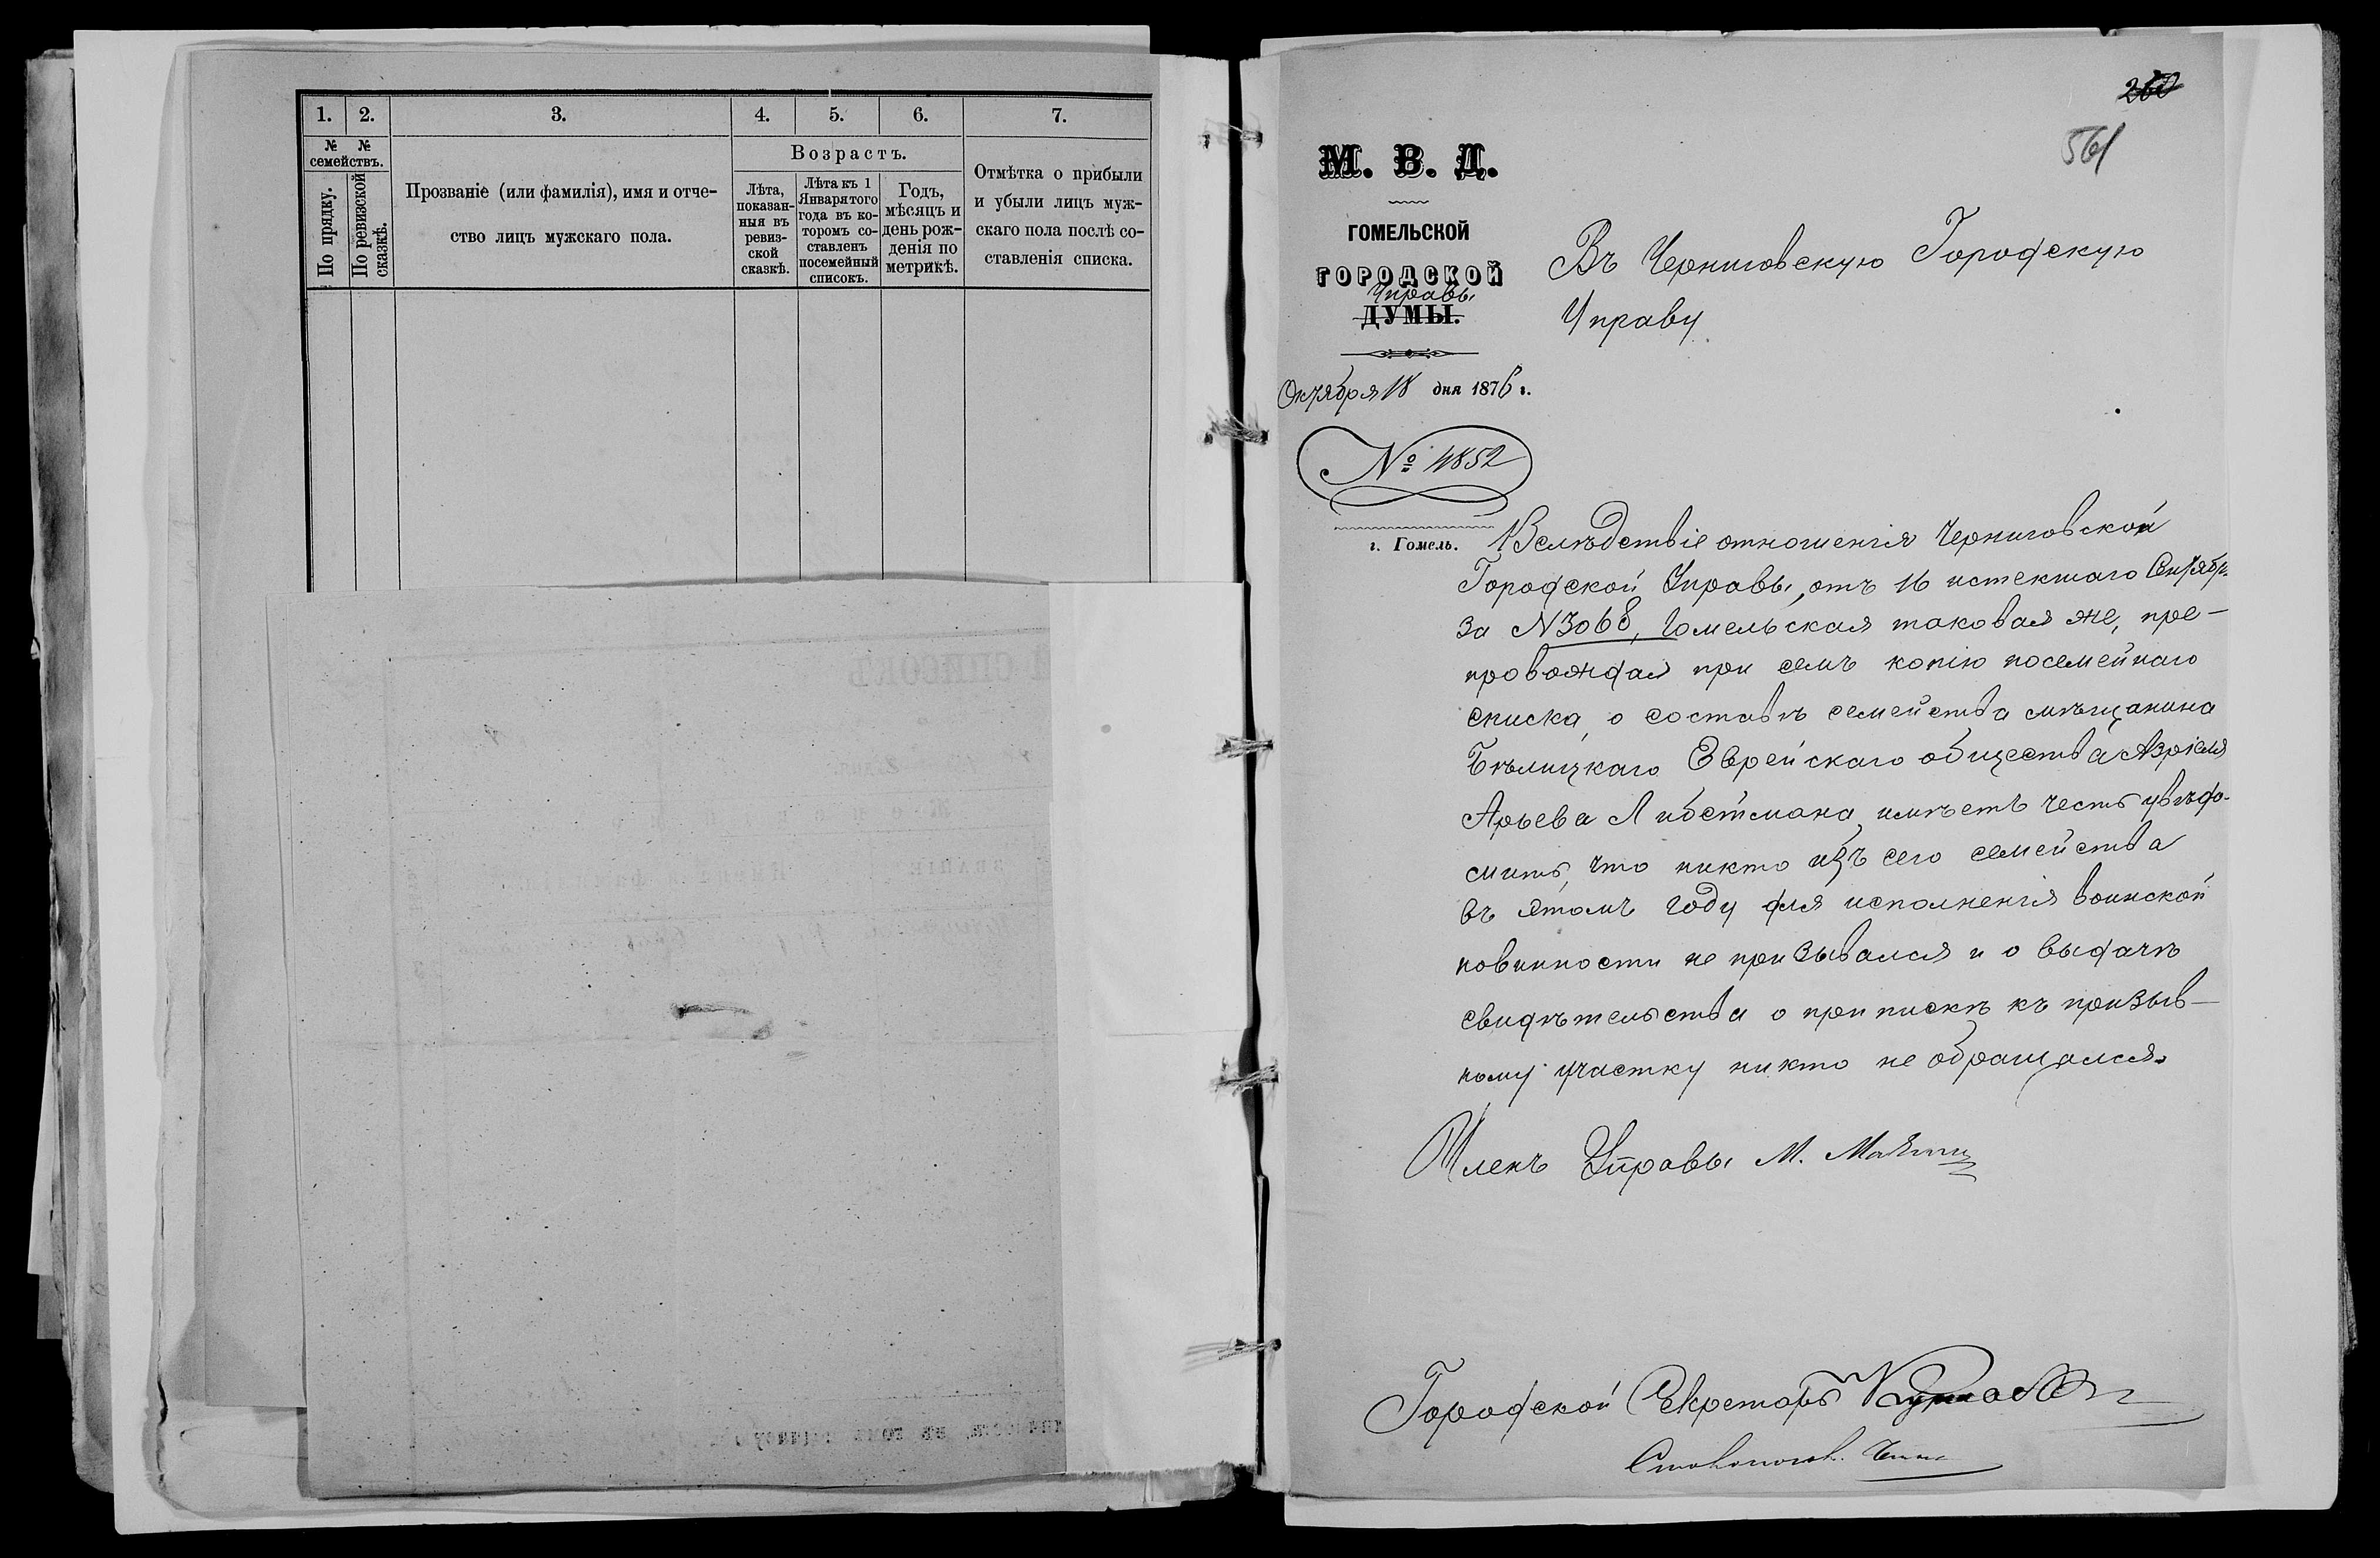 1.
2.
3.
4.
5.
6.
7.
№ №
семействъ.
По прядку.
По ревизской
сказкѣ.
Прозваніе (или фамилія), имя и отче-
ство лицъ мужскаго пола.
Возрастъ.
Лѣта,
показан-
ныя въ
ревиз-
ской
сказкѣ.
Лѣта къ 1
Января того
года въ ко-
торомъ со-
ставленъ
посемейный
списокъ.
Годъ,
мѣсяцъ и
день рож-
денія по
метрикѣ.
Отмѣтка о прибыли
и убыли лицъ муж-
скаго пола послѣ со-
ставленія списка.
СПИСОКЪ
260
561
М. В. Д.
ГОМЕЛЬСКОЙ
ГОРОДСКОЙ
Управы
ДУМЫ.
Октября 18 дня 1876 г.
№ 4852
г. Гомель.
Въ Черниговскую Городскую
Управу
Вслѣдствіе отношенія Черниговской
Городской Управы, отъ 16 истекшаго Сентябр.
за N 3068, Гомельская таковая же, пре-
провождая при семъ копію посемейнаго
списка, о составѣ семейства мѣщанина
Бѣлицкаго Еврейскаго общества Азріеля
Арьева Либетмана, имѣетъ честь увѣдо-
мить, что никто изъ сего семейства
въ этомъ году для исполненія воинской
повинности не призывался и о выдачѣ
свидѣтельства о припискѣ къ призыв-
ному участку никто не обращался.
Членъ Управы М.
Городской Секретарь